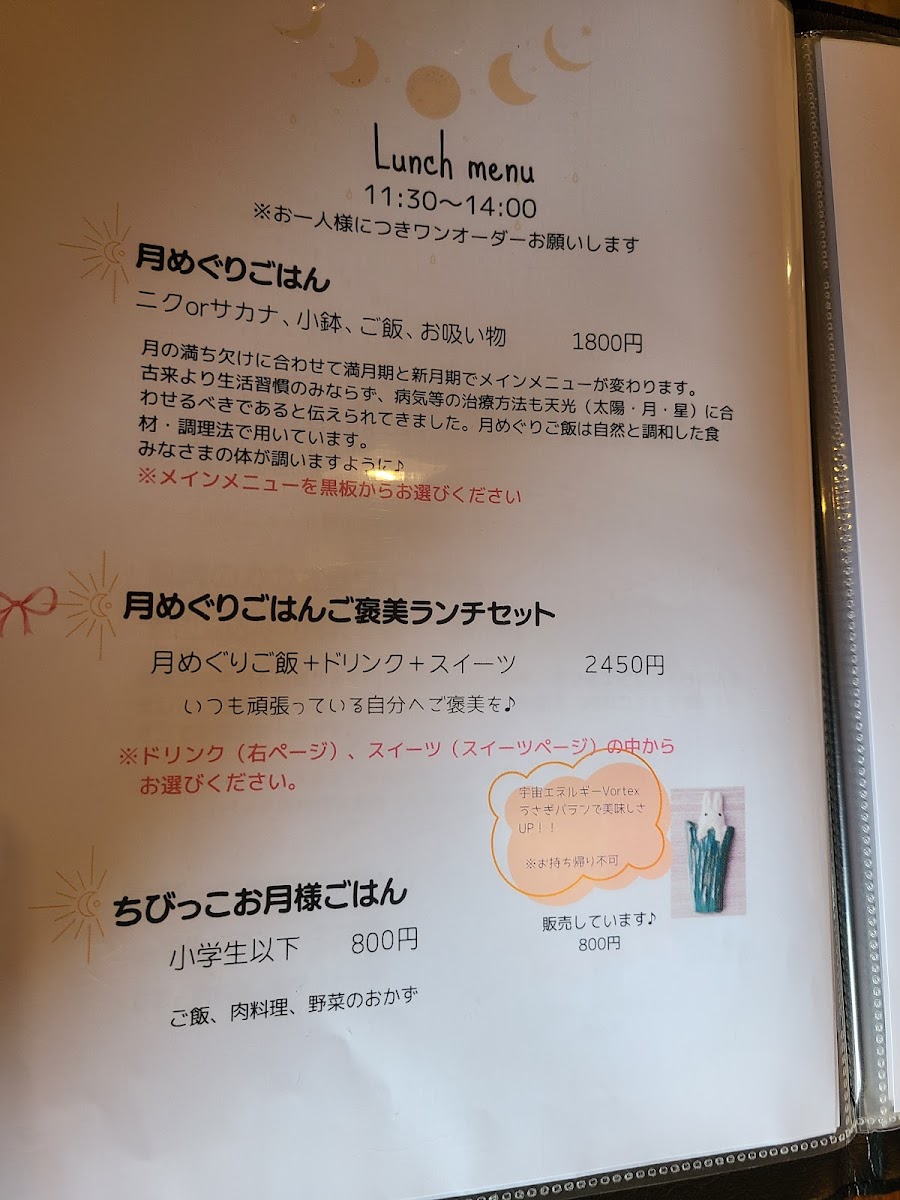 Lunch menu
11:30～14:00
※お一人様につきワンオーダーお願いします
月めぐりごはん
ニクorサカナ、小鉢、ご飯、お吸い物 1800円
月の満ち欠けに合わせて満月期と新月期でメインメニューが変わります。
古来より生活習慣のみならず、病気等の治療方法も天光（太陽・月・星）に合
わせるべきであると伝えられてきました。月めぐりご飯は自然と調和した食
材・調理法で用いています。
みなさまの体が調いますように♪
※メインメニューを黒板からお選びください
月めぐりごはんご褒美ランチセット
月めぐりご飯＋ドリンク＋スイーツ 2450円
いつも頑張っている自分へご褒美を♪
※ドリンク（右ページ）、スイーツ（スイーツページ）の中から
お選びください。
宇宙エネルギーVortex
うさぎバランで美味しさ
UP！！
※お持ち帰り不可
販売しています♪
800円
ちびっこお月様ごはん
小学生以下 800円
ご飯、肉料理、野菜のおかず